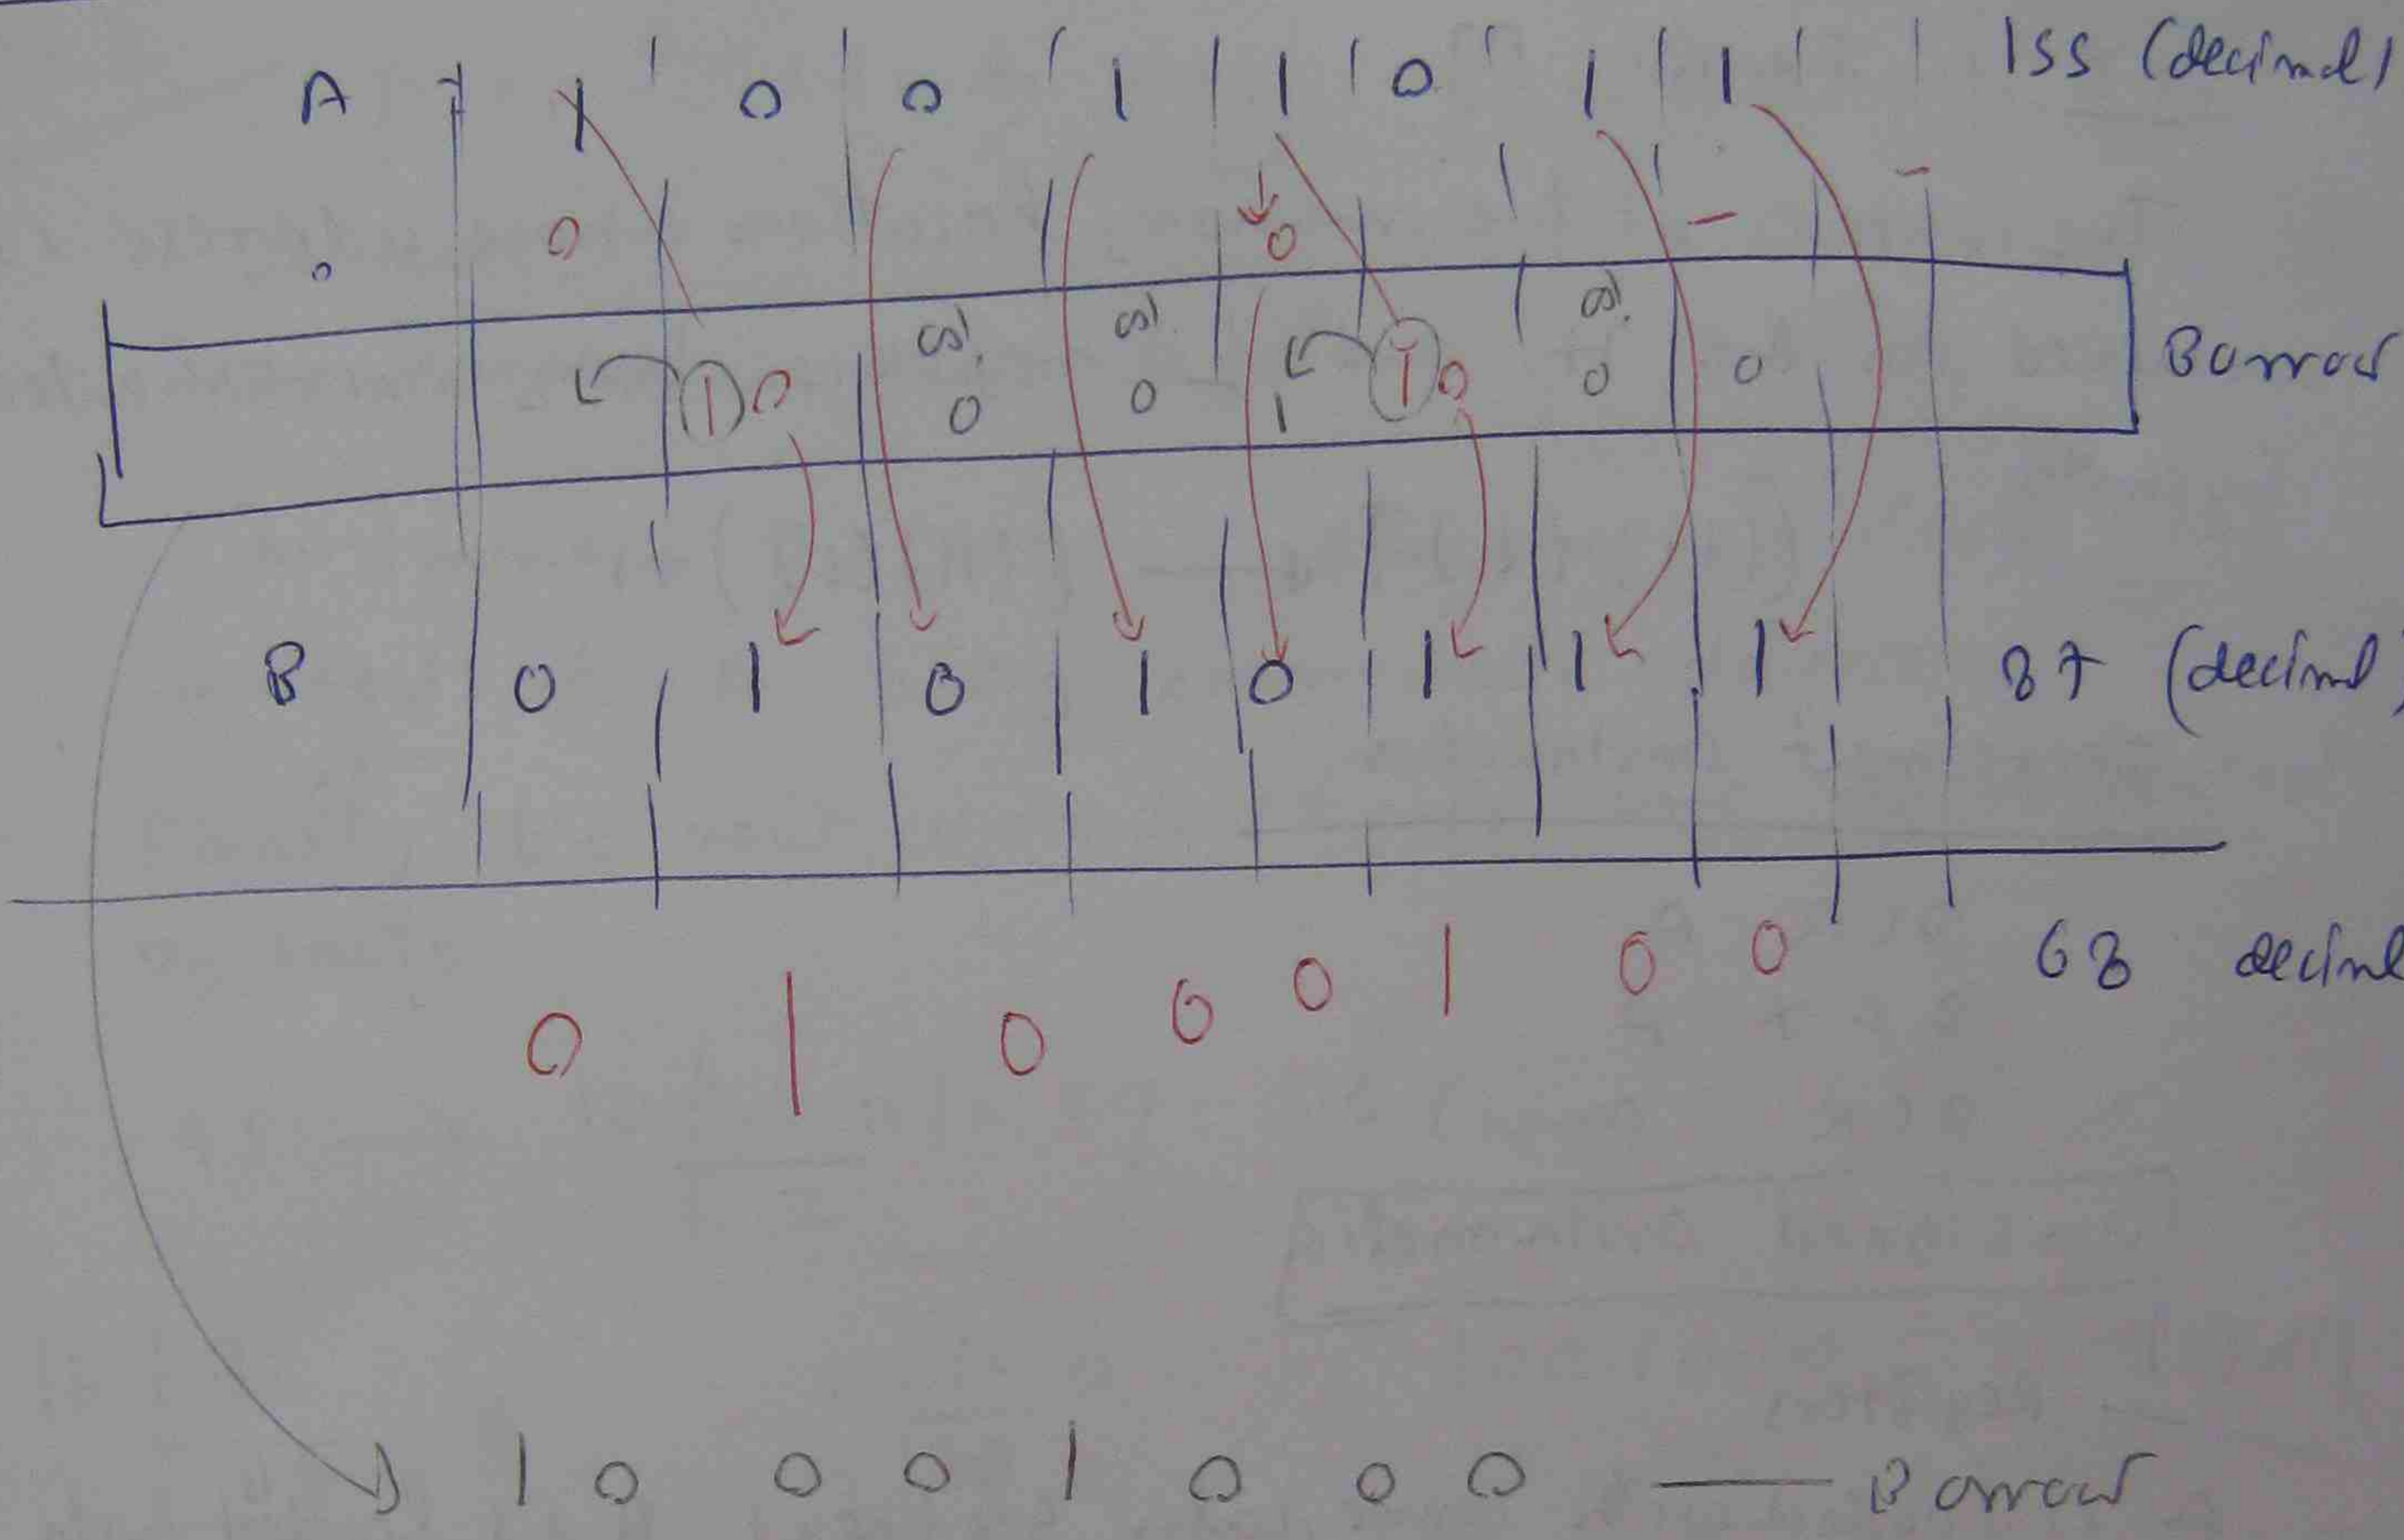 A 1 0 0 1 1 0 1 1 155 (decimal)
0 0
1 0 0 0 1 1 0 0 0 Borrow
B 0 1 0 1 0 1 1 1 87 (decimal)
0 1 0 0 0 1 0 0 68 decimal
1 0 0 0 1 0 0 0 — Borrow